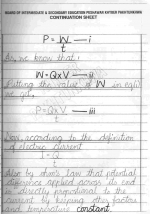 BOARD OF INTERMEDIATE & SECONDARY EDUCATION PESHAWAR KHYBER PAKHTUNKHWA
CONTINUATION SHEET
P = W — i
t
As, we know that:
W = Q x V — ii
Putting the value of W in eq(i)
we get,
P = Q x V — iii
t
Now according to the definition
of electric current
I = Q
t
Also by ohm's law that potential
difference applied across its end
is directly proportional to the
current by keeping other factors
and temperature constant.